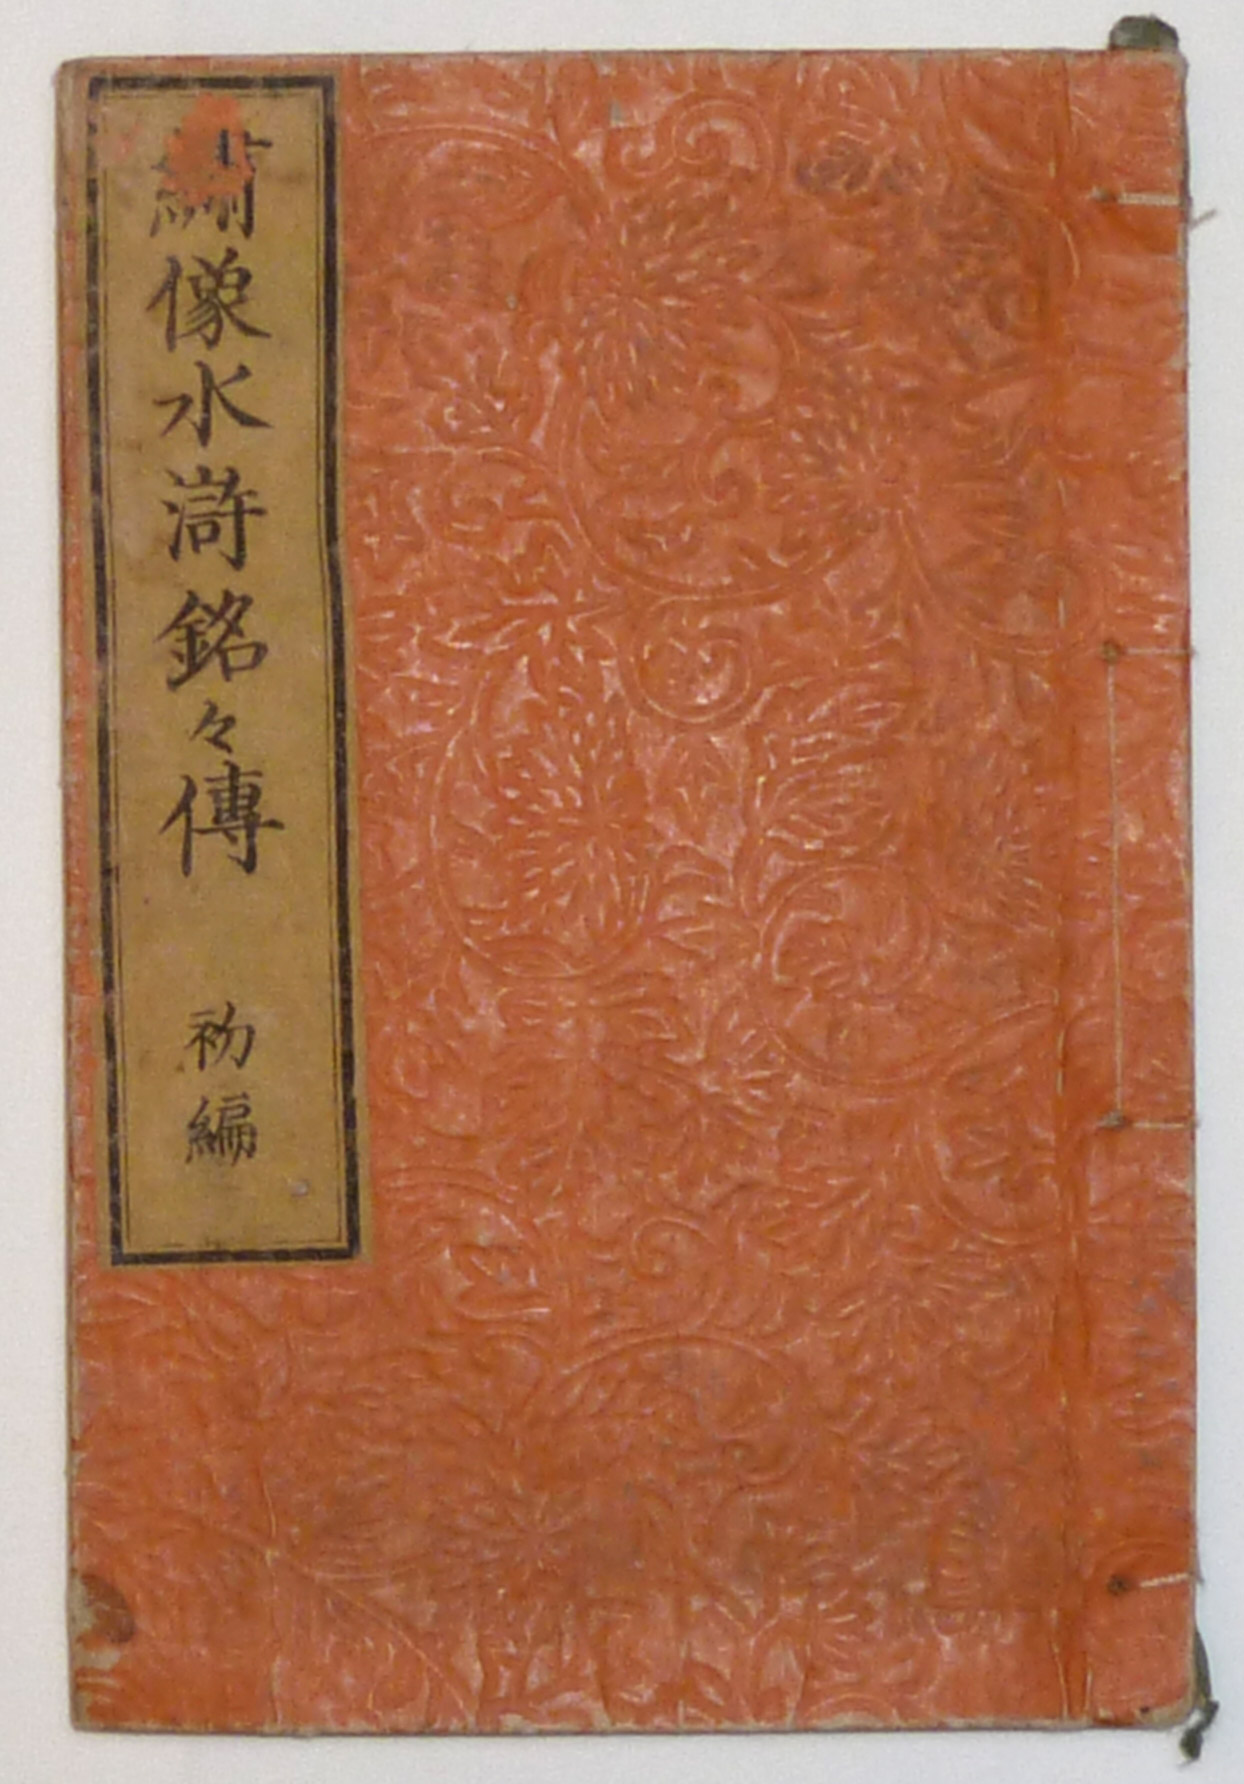 繍像水滸銘々傳 初編